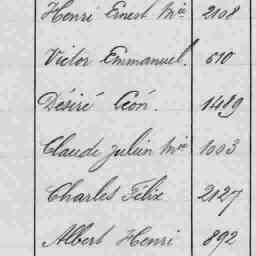 Henri Ernest Mie 2108
Victor Emmanuel. 510
Désiré Léon. 1489
Claude Julien Mie 1003
Charles Félix 2127
Albert Henri 892